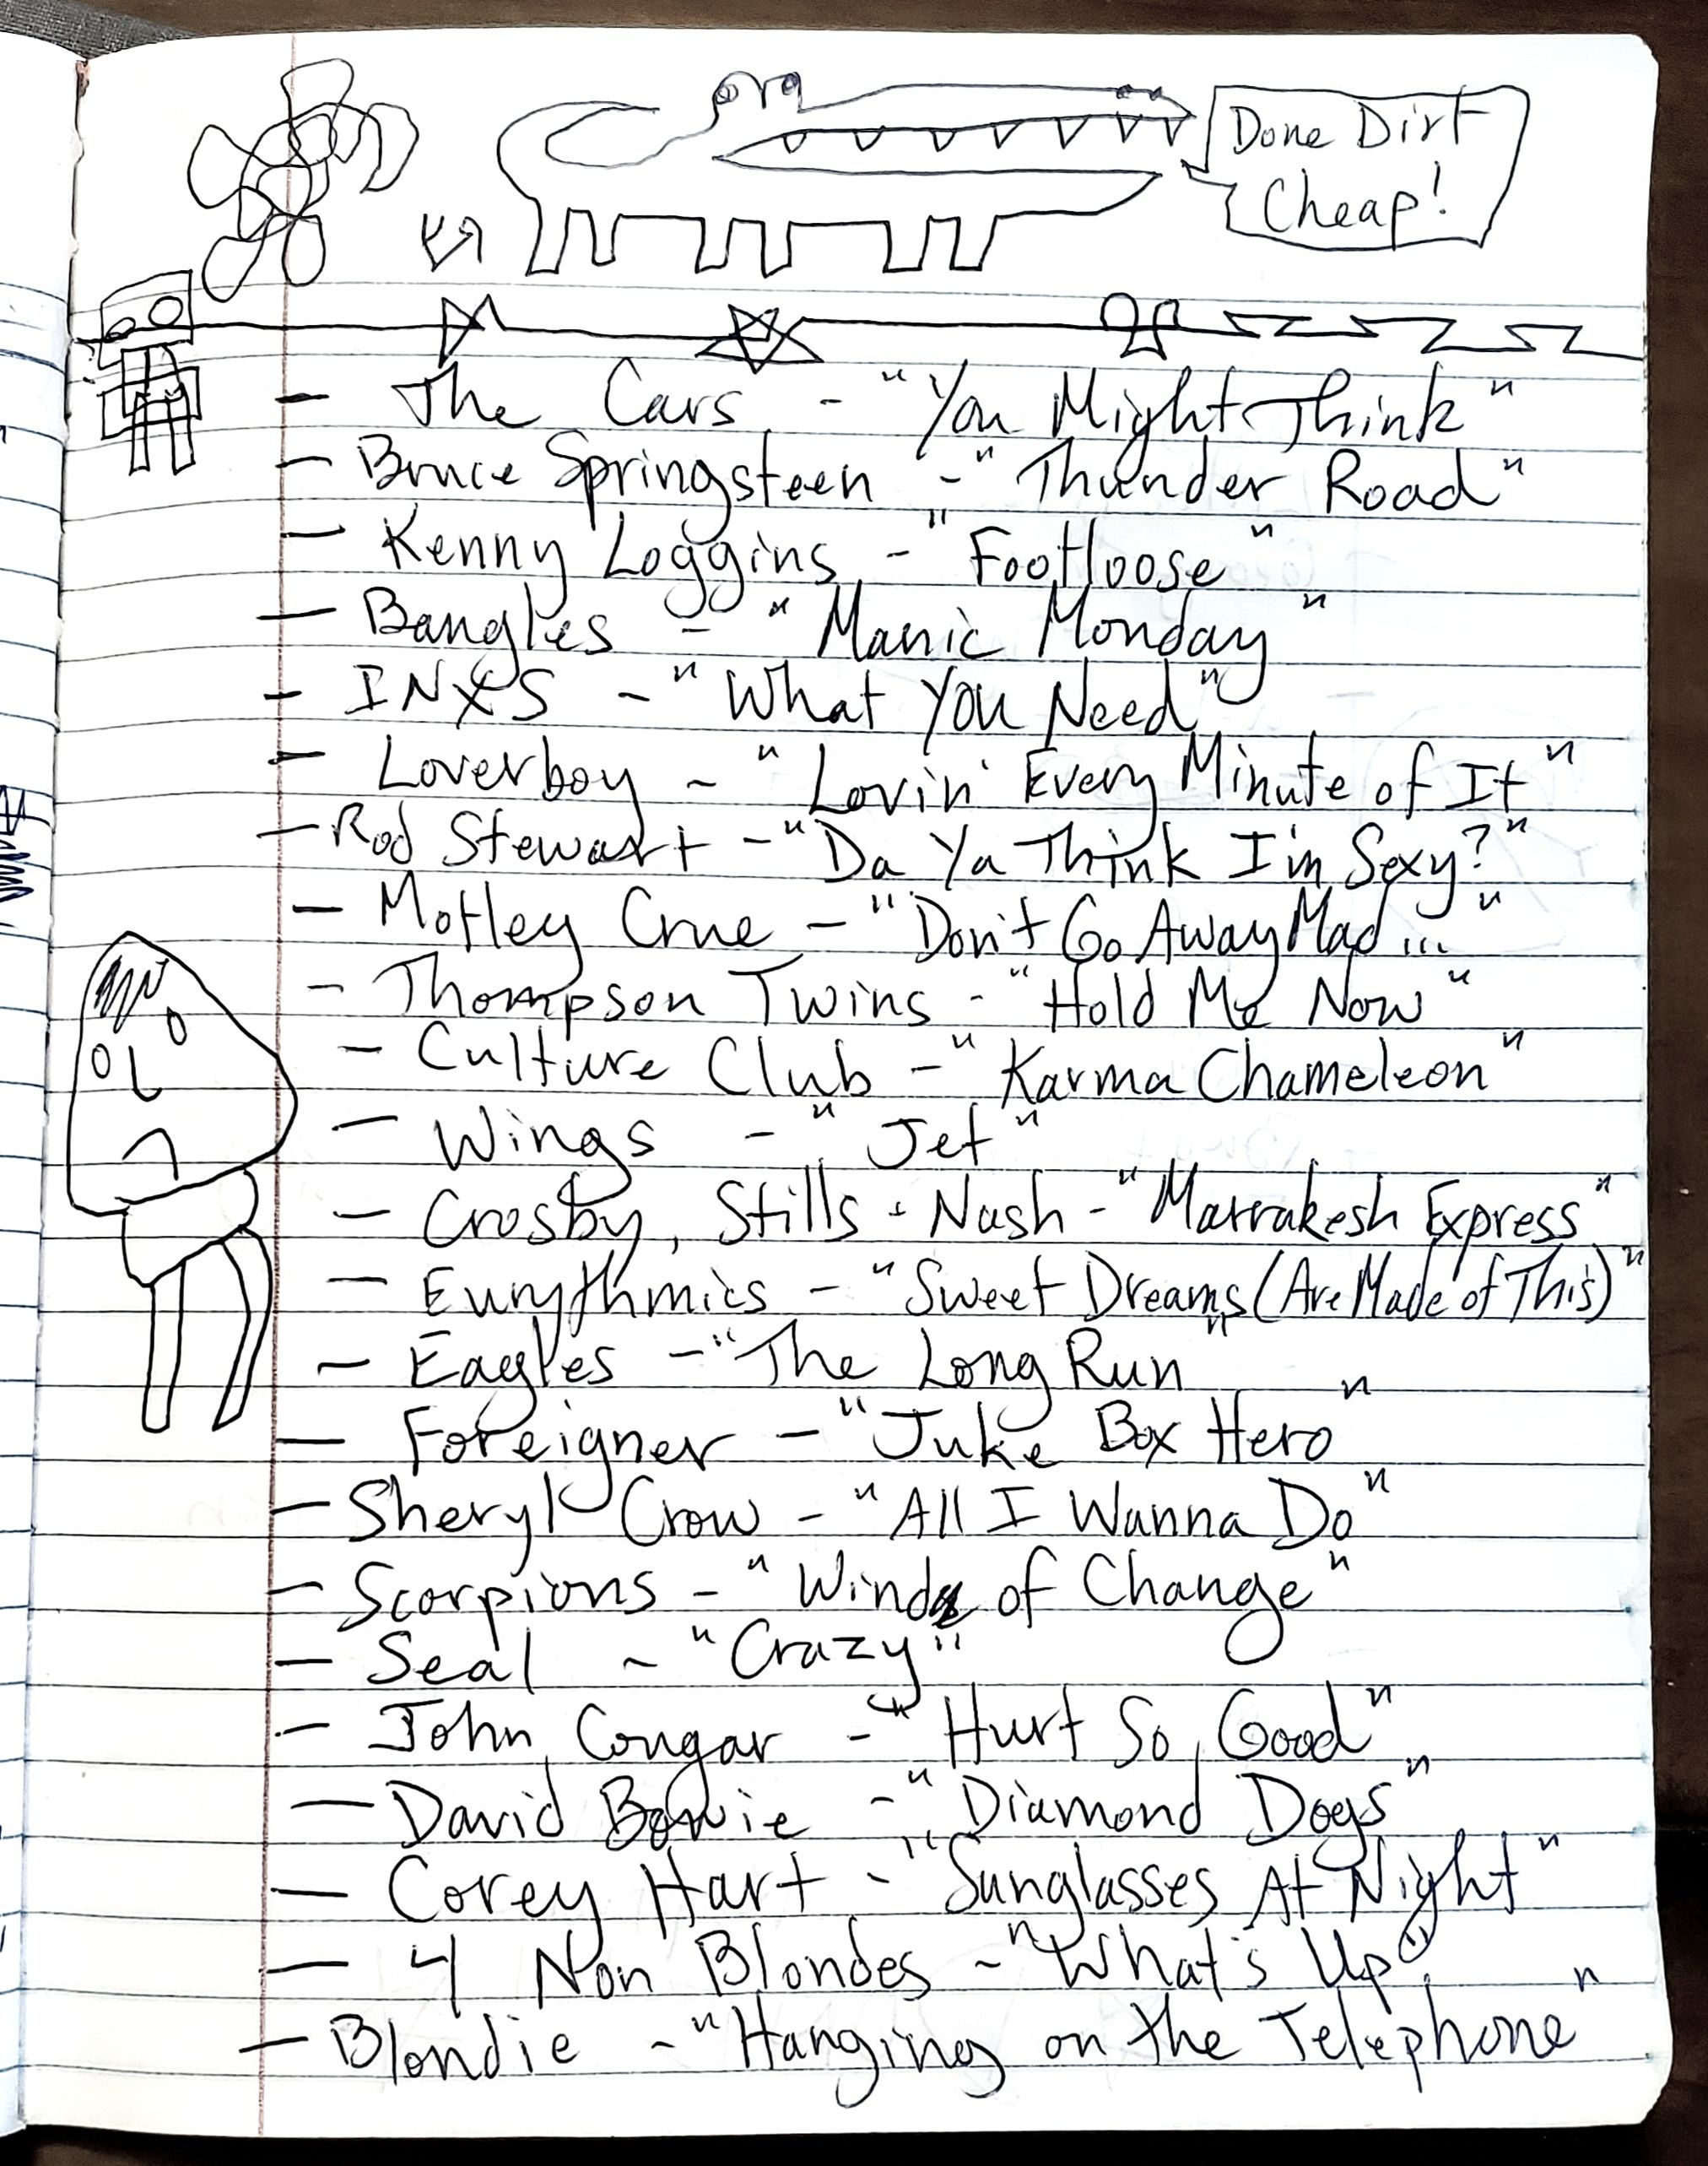 Done Dirt
Cheap!
- The Cars - "You Might Think"
- Bruce Springsteen - "Thunder Road"
- Kenny Loggins - "Footloose"
- Bangles - "Manic Monday"
- INXS - "What You Need"
- Loverboy - "Lovin' Every Minute of It"
- Rod Stewart - "Da Ya Think I'm Sexy?"
- Motley Crue - "Don't Go Away Mad..."
- Thompson Twins - "Hold Me Now"
- Culture Club - "Karma Chameleon"
- Wings - "Jet"
- Crosby, Stills + Nash - "Marrakesh Express"
- Eurythmics - "Sweet Dreams (Are Made of This)"
- Eagles - "The Long Run"
- Foreigner - "Juke Box Hero"
- Sheryl Crow - "All I Wanna Do"
- Scorpions - "Wind of Change"
- Seal - "Crazy"
- John Cougar - "Hurt So Good"
- David Bowie - "Diamond Dogs"
- Corey Hart - "Sunglasses At Night"
- 4 Non Blondes - "What's Up"
- Blondie - "Hanging on the Telephone"